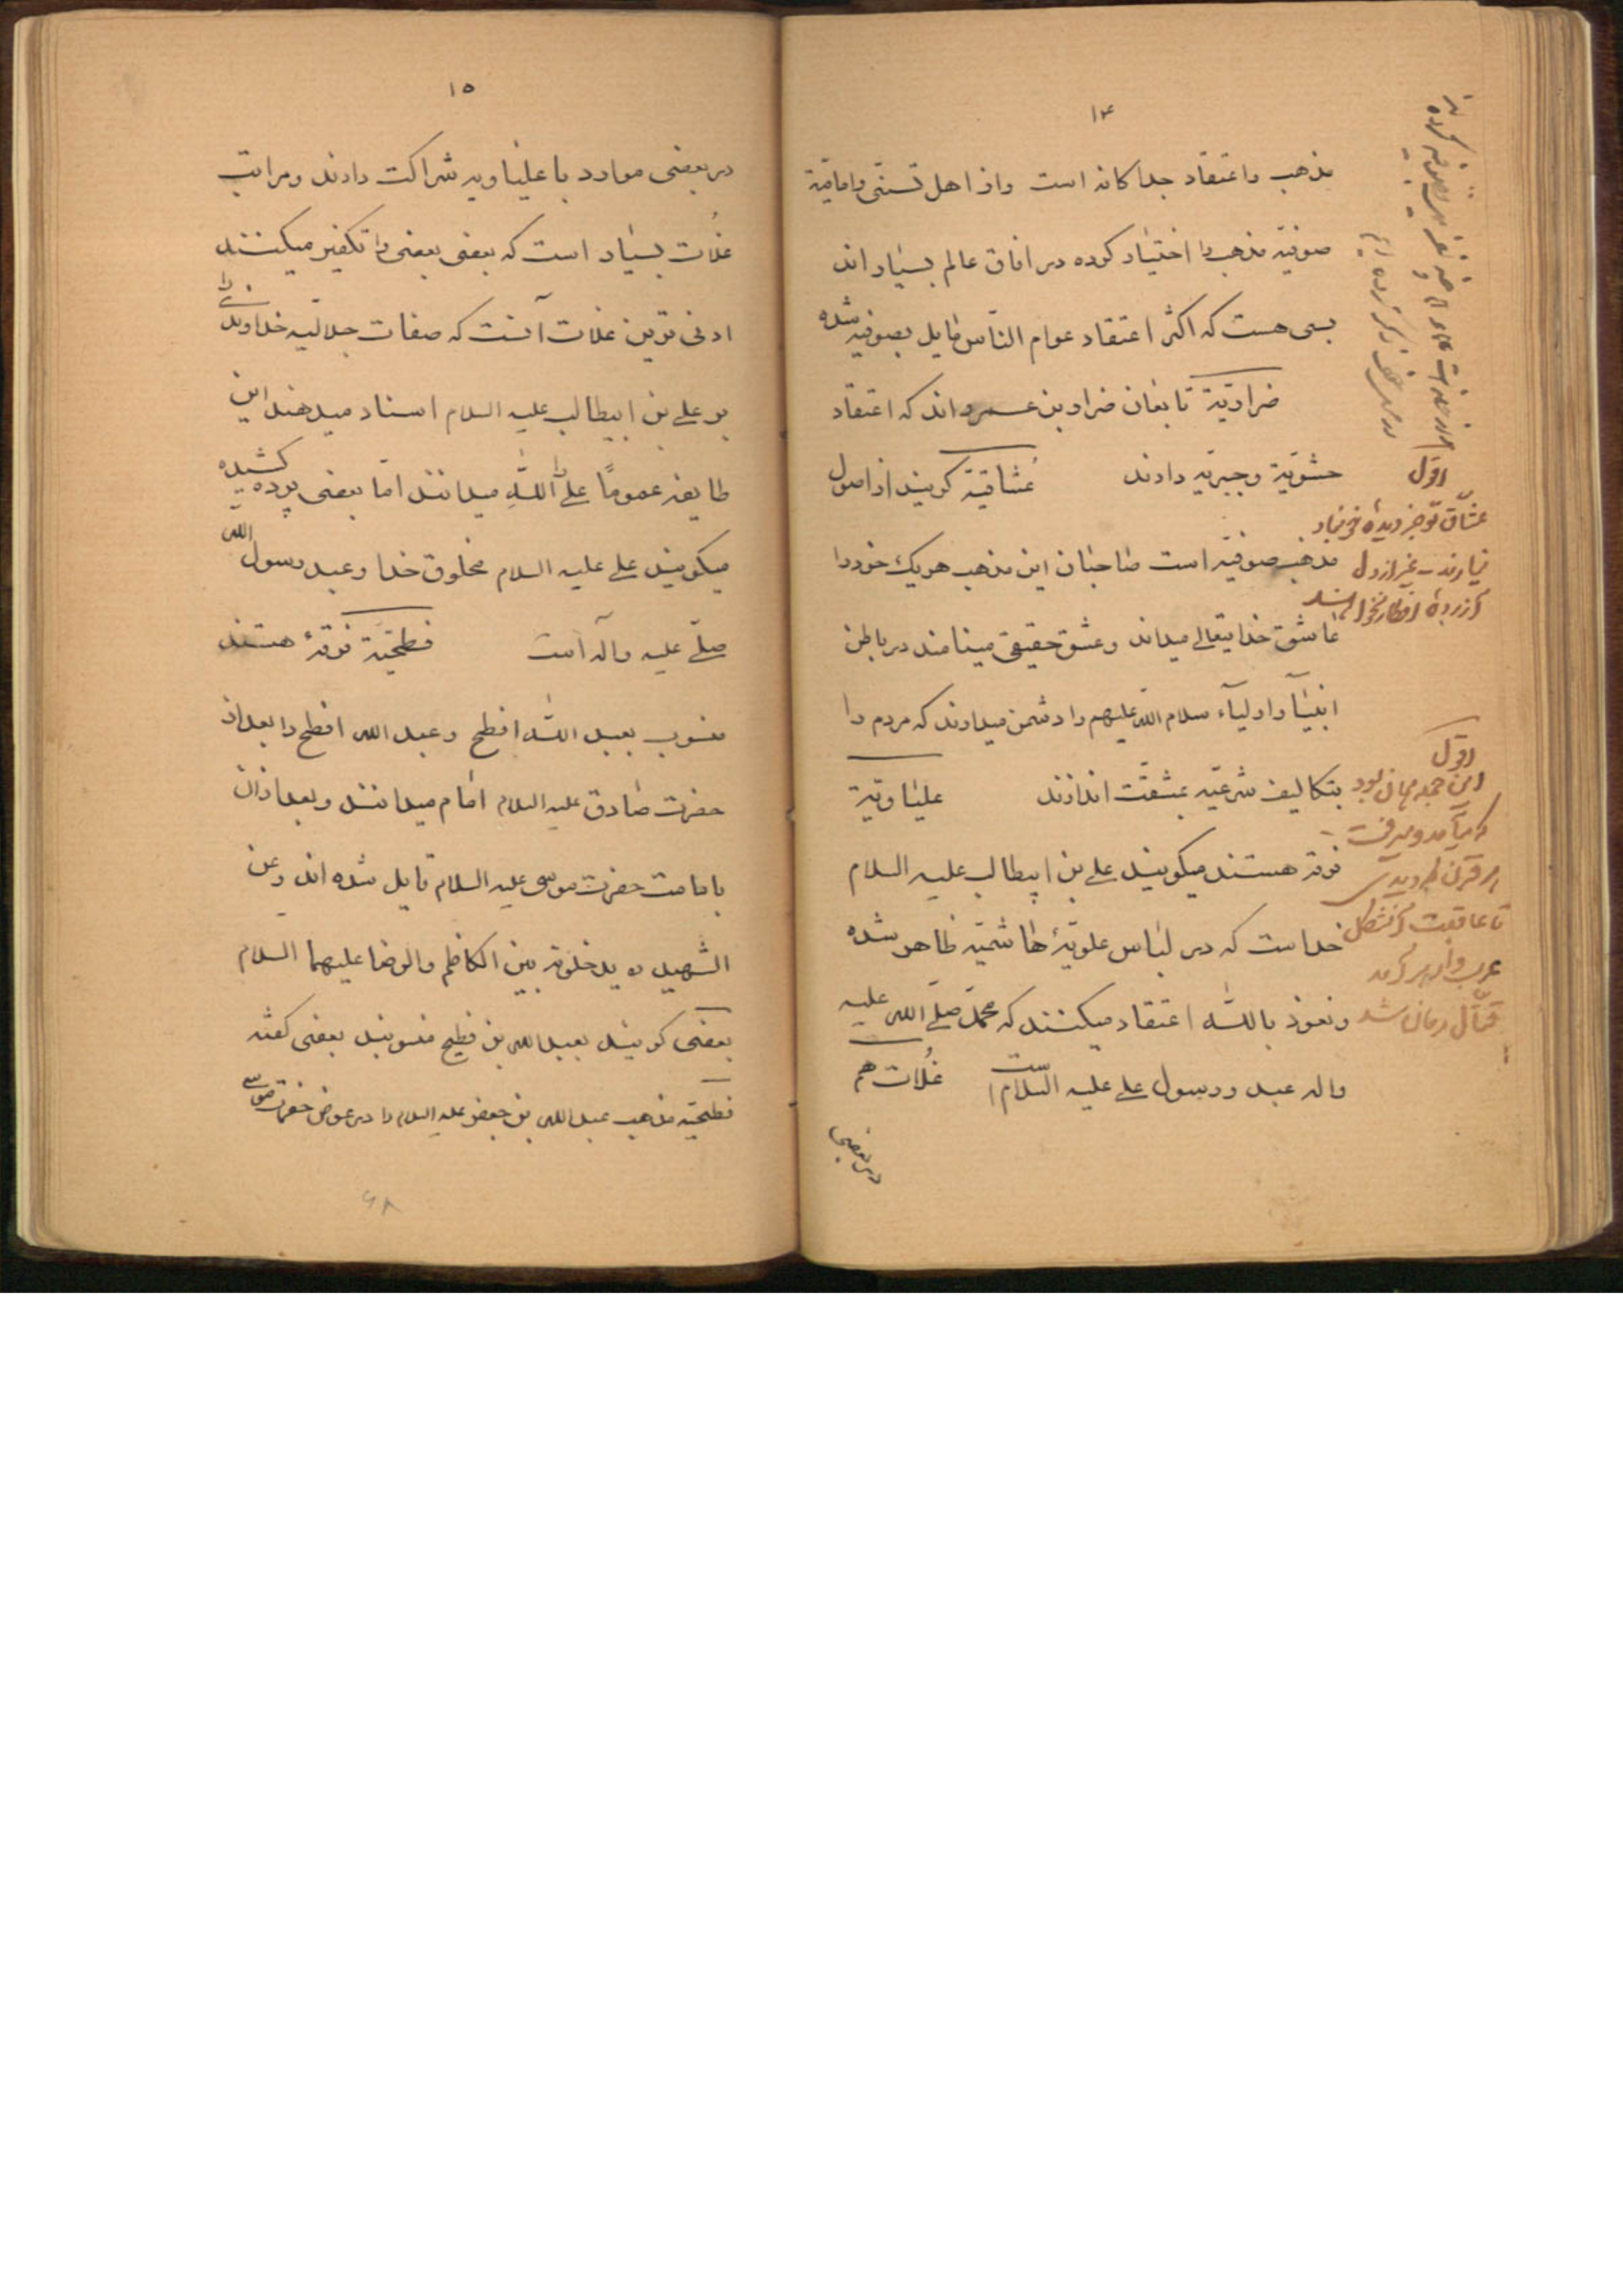 ۱۴
مذهب و اعتقاد جداکانه است و از اهل تسنّی و امامیّه
صوفیّه مذهب را اختیار کرده در افاق عالم بسیار اند
بسی هست که اکثر اعتقاد عوام النّاس مایل بصوفیّه شده
ضراریّة تابعان ضرار بن عمرو اند که اعتقاد
حشویّة و جبریّه دارند عُشاقیّة کویند از اصول
مذهب صوفیّه است صاحبان این مذهب هریک خود را
عاشق خدایتعالے میداند و عشق حقیقی مینامند در باطن
انبیآ و اولیآء سلام اللّه علیهم را دشمن میدارند که مردم را
بتکالیف شرعیّه بمشقّت اندازند علیاویّة
فرقه هستند میکویند علے بن ابیطالب علیه السلام
خداست که در لباس علویّهٔ هاشمیّه ظاهر شده
و نعوذ باللّه اعتقاد میکنند که محمّد صلّے اللّه علیه
و اله عبد و رسول علے علیه السّلام است غُلات هم
در بعضی
اقول
عشّاق تو جز دیدهٔ خونبار
نیارند غیر از دل
آزردهٔ
اقول
این همه همان بود
که میآمد و میرفت
هر قرن که دیدی
تا عاقبت آنشکل
عرب وار برآمد
قتّال زمان شد
۱۵
در بعضی موارد با علیاویه شراکت دارند و مراتب
غُلات بسیار است که بعضی بعضی را تکفیر میکنند
ادنی ترین غلات آنست که صفات جلالیّه خداوندی را
بر علے بن ابیطالب علیه السلام اسناد میدهند این
طایفه عمومًا علے را اللّه میدانند امّا بعضی پرده کشیده
میکویند علے علیه السلام مخلوق خدا و عبد رسول اللّه
صلّے علیه و آله است فطحیّة فرقهٔ هستند
منسوب بعبد اللّه افطح و عبد اللّه افطح را بعد از
حضرت صادق علیه السلام امام میدانند و بعد از ان
بامامت حضرت موسی علیه السلام قایل شده اند و عن
الشهید ره یدخلونه بین الکاظم و الرضا علیهما السلام
بعضی کویند بعبد اللّه بن فطیح منسوبند بعضی کفته
فطحیّه مذهب عبد اللّه بن جعفر علیه السلام را در عوض حضرت موسی
۶۸